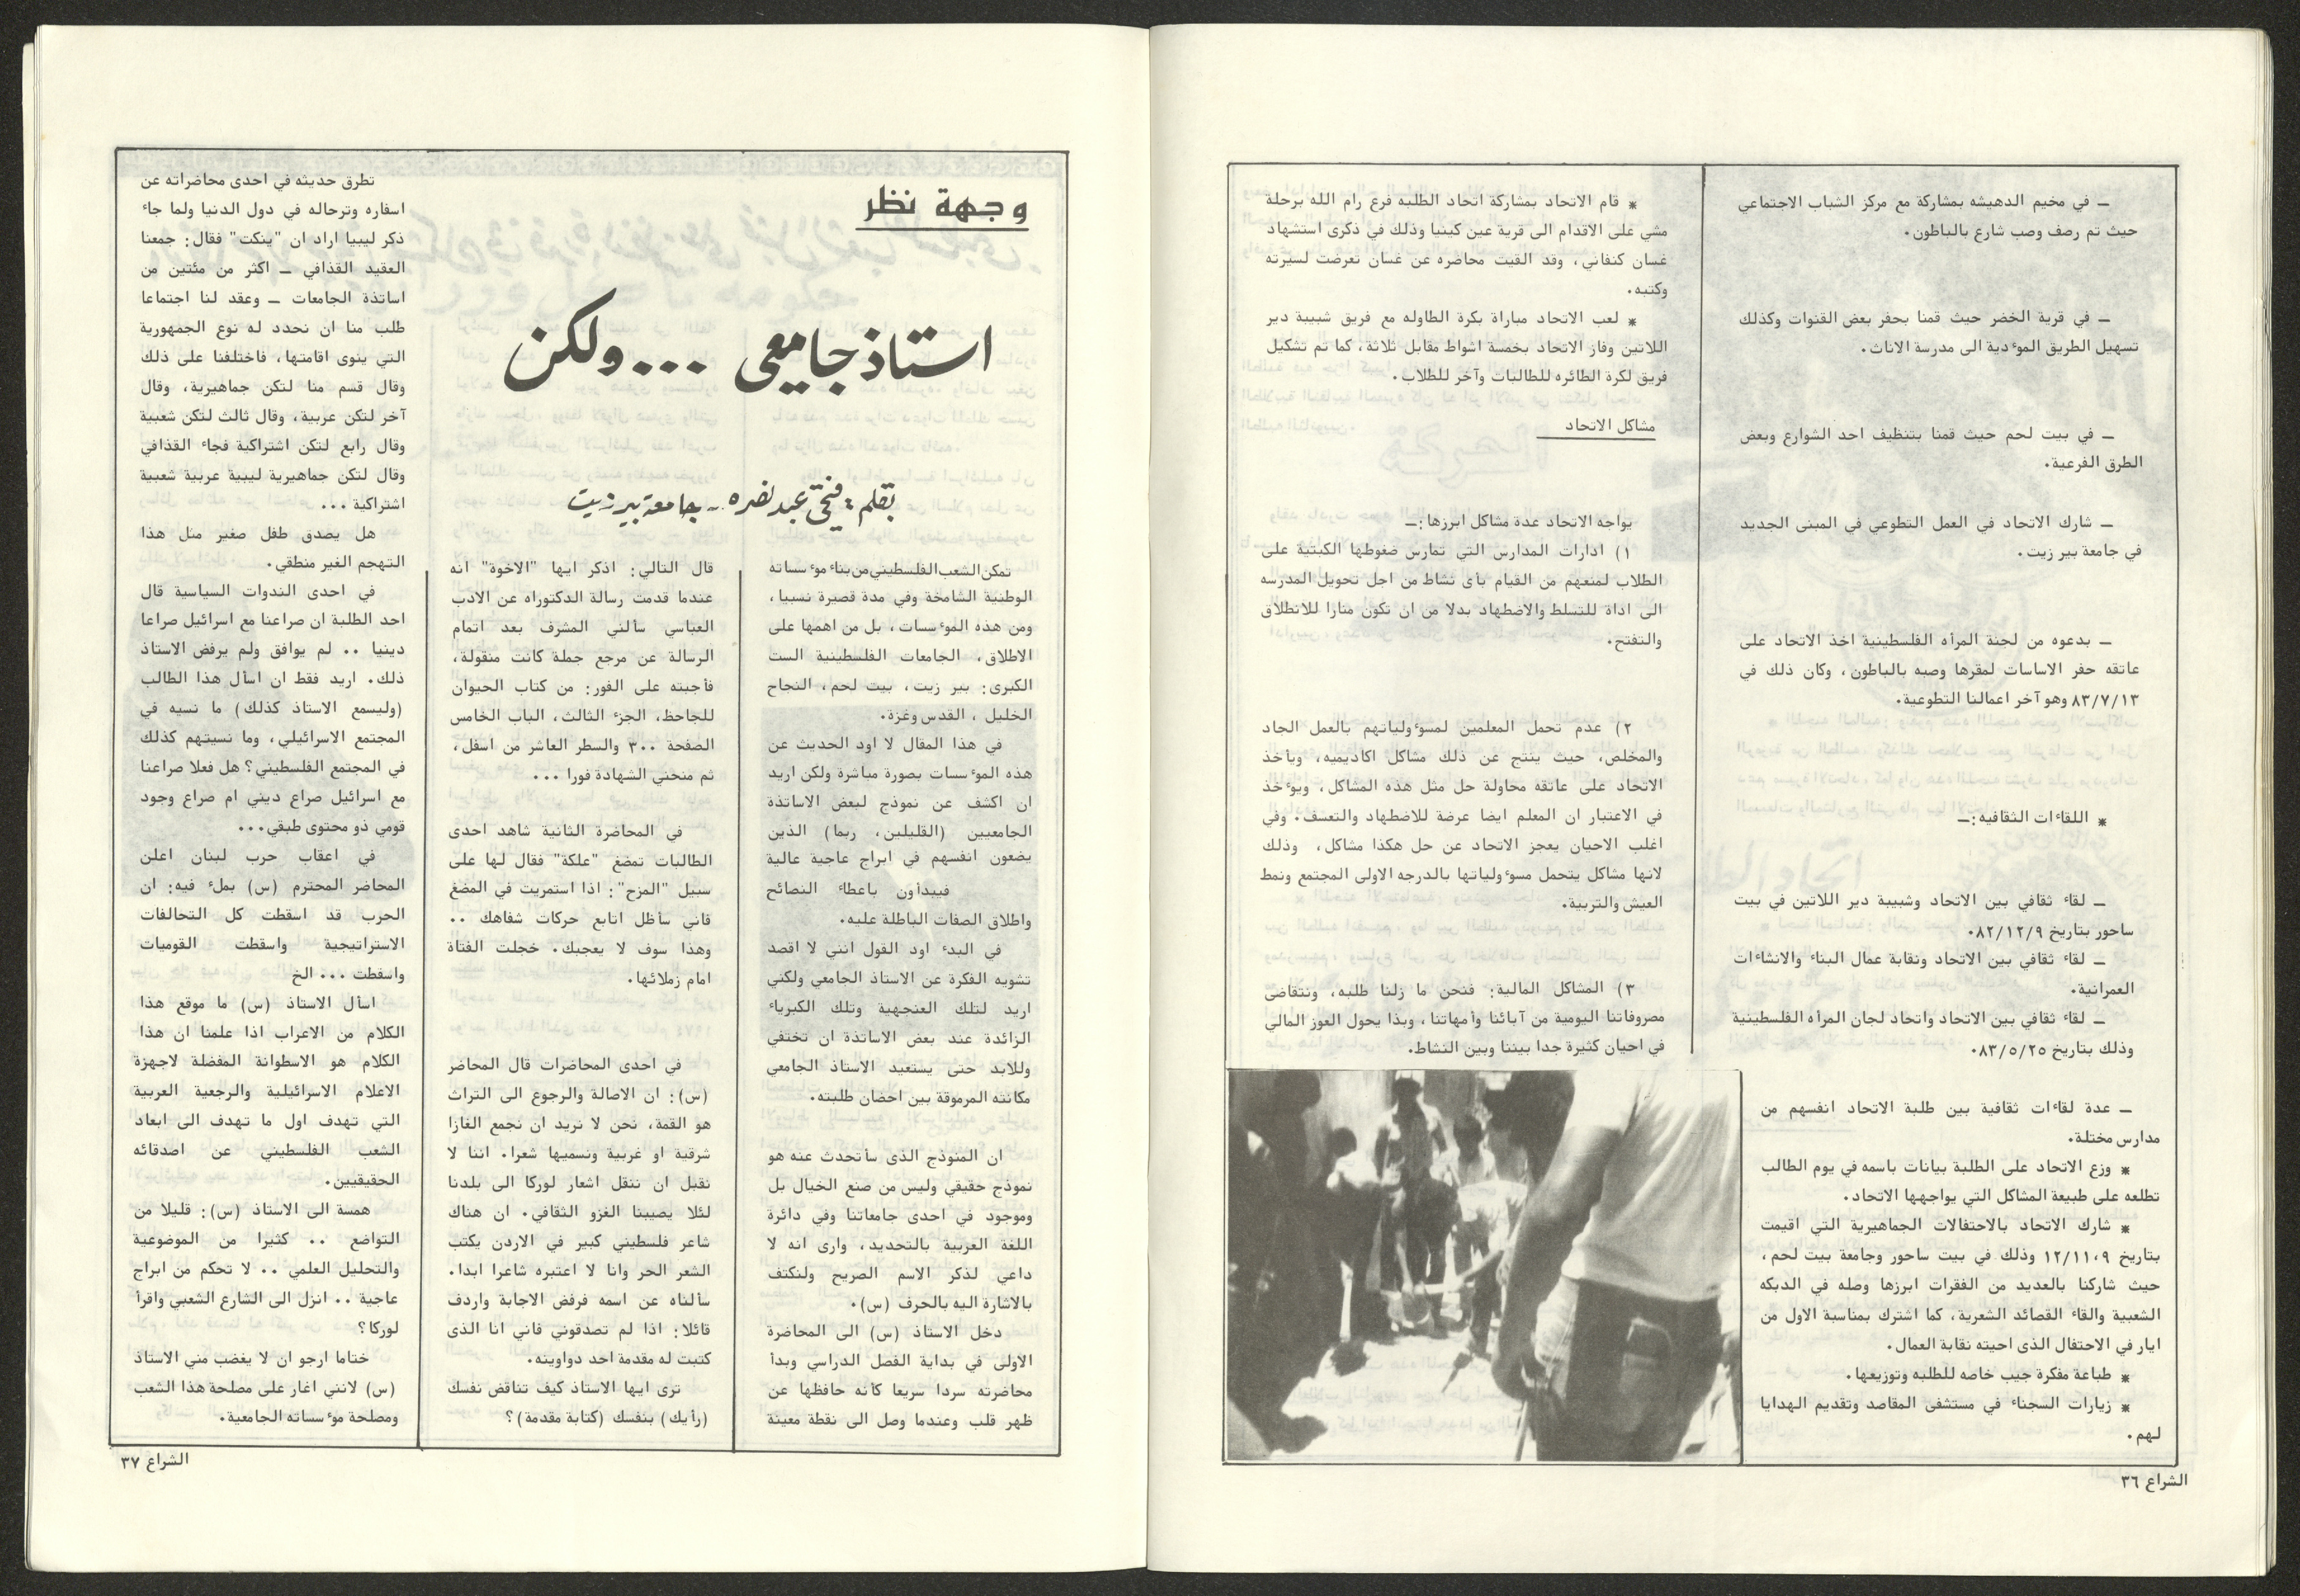 ـ في مخيم الدهيشه بمشاركة مع مركز الشباب الاجتماعي
حيث تم رصف وصب شارع بالباطون.
ـ في قرية الخضر حيث قمنا بحفر بعض القنوات وكذلك
تسهيل الطريق الموءدية الى مدرسة الاناث.
ـ في بيت لحم حيث قمنا بتنظيف احد الشوارع وبعض
الطرق الفرعية.
ـ شارك الاتحاد في العمل التطوعي في المبنى الجديد
في جامعة بير زيت.
ـ بدعوه من لجنة المرأه الفلسطينية اخذ الاتحاد على
عاتقه حفر الاساسات لمقرها وصبه بالباطون، وكان ذلك في
٨٣/٧/١٣ وهو آخر اعمالنا التطوعية.
* اللقاءات الثقافيه:ـ
ـ لقاء ثقافي بين الاتحاد وشبيبة دير اللاتين في بيت
ساحور بتاريخ ٨٢/١٢/٩.
ـ لقاء ثقافي بين الاتحاد ونقابة عمال البناء والانشاءات
العمرانية.
ـ لقاء ثقافي بين الاتحاد واتحاد لجان المرأه الفلسطينية
وذلك بتاريخ ٨٣/٥/٢٥.
ـ عدة لقاءات ثقافية بين طلبة الاتحاد انفسهم من
مدارس مختلة.
* وزع الاتحاد على الطلبة بيانات باسمه في يوم الطالب
تطلعه على طبيعة المشاكل التي يواجهها الاتحاد.
* شارك الاتحاد بالاحتفالات الجماهيرية التي اقيمت
بتاريخ ١٢/١١،٩ وذلك في بيت ساحور وجامعة بيت لحم،
حيث شاركنا بالعديد من الفقرات ابرزها وصله في الدبكه
الشعبية والقاء القصائد الشعرية، كما اشترك بمناسبة الاول من
ايار في الاحتفال الذى احيته نقابة العمال.
* طباعة مفكرة جيب خاصه للطلبه وتوزيعها.
* زيارات السجناء في مستشفى المقاصد وتقديم الهدايا
لهم.
* قام الاتحاد بمشاركة اتحاد الطلبه فرع رام الله برحلة
مشي على الاقدام الى قرية عين كينيا وذلك في ذكرى استشهاد
غسان كنفاني، وقد القيت محاضره عن غسان تعرضت لسيرته
وكتبه.
* لعب الاتحاد مباراة بكرة الطاوله مع فريق شبيبة دير
اللاتين وفاز الاتحاد بخمسة اشواط مقابل ثلاثة، كما تم تشكيل
فريق لكرة الطائره للطالبات وآخر للطلاب.
مشاكل الاتحاد
يواجه الاتحاد عدة مشاكل ابرزها:ـ
١) ادارات المدارس التي تمارس ضغوطها الكبتية على
الطلاب لمنعهم من القيام بأى نشاط من اجل تحويل المدرسه
الى اداة للتسلط والاضطهاد بدلا من ان تكون منارا للانطلاق
والتفتح.
٢) عدم تحمل المعلمين لمسوءولياتهم بالعمل الجاد
والمخلص، حيث ينتج عن ذلك مشاكل اكاديميه، ويأخذ
الاتحاد على عاتقه محاولة حل مثل هذه المشاكل، ويوءخذ
في الاعتبار ان المعلم ايضا عرضة للاضطهاد والتعسف. وفي
اغلب الاحيان يعجز الاتحاد عن حل هكذا مشاكل، وذلك
لانها مشاكل يتحمل مسوءولياتها بالدرجه الاولى المجتمع ونمط
العيش والتربية.
٣) المشاكل المالية: فنحن ما زلنا طلبه، ونتقاضى
مصروفاتنا اليومية من آبائنا وأمهاتنا، وبذا يحول العوز المالي
في احيان كثيرة جدا بيننا وبين النشاط.
الشراع ٣٦
وجهة نظر
استاذ جامعي ... ولكن
بقلم: فتحي عبد نصره - جامعة بير زيت
تمكن الشعب الفلسطيني من بناء موءسساته
الوطنية الشامخة وفي مدة قصيرة نسبيا،
ومن هذه الموءسسات، بل من اهمها على
الاطلاق، الجامعات الفلسطينية الست
الكبرى: بير زيت، بيت لحم، النجاح
الخليل، القدس وغزة.
في هذا المقال لا اود الحديث عن
هذه الموءسسات بصورة مباشرة ولكن اريد
ان اكشف عن نموذج لبعض الاساتذة
الجامعيين (القليلين، ربما) الذين
يضعون انفسهم في ابراج عاجية عالية
فيبدأون باعطاء النصائح
واطلاق الصفات الباطلة عليه.
في البدء اود القول انني لا اقصد
تشويه الفكرة عن الاستاذ الجامعي ولكني
اريد لتلك العنجهية وتلك الكبرياء
الزائدة عند بعض الاساتذة ان تختفي
وللابد حتى يستعيد الاستاذ الجامعي
مكانته المرموقة بين احضان طلبته.
ان المنوذج الذى سأتحدث عنه هو
نموذج حقيقي وليس من صنع الخيال بل
وموجود في احدى جامعاتنا وفي دائرة
اللغة العربية بالتحديد، وارى انه لا
داعي لذكر الاسم الصريح ولنكتف
بالاشارة اليه بالحرف (س).
دخل الاستاذ (س) الى المحاضرة
الاولى في بداية الفصل الدراسي وبدأ
محاضرته سردا سريعا كأنه حافظها عن
ظهر قلب وعندما وصل الى نقطة معينة
قال التالي: اذكر ايها "الاخوة" انه
عندما قدمت رسالة الدكتوراه عن الادب
العباسي سألني المشرف بعد اتمام
الرسالة عن مرجع جملة كانت منقولة،
فأجبته على الفور: من كتاب الحيوان
للجاحظ، الجزء الثالث، الباب الخامس
الصفحة ٣٠٠ والسطر العاشر من اسفل،
ثم منحني الشهادة فورا ...
في المحاضرة الثانية شاهد احدى
الطالبات تمضغ "علكة" فقال لها على
سبيل "المزح": اذا استمريت في المضغ
فاني سأظل اتابع حركات شفاهك ..
وهذا سوف لا يعجبك. خجلت الفتاة
امام زملائها.
في احدى المحاضرات قال المحاضر
(س): ان الاصالة والرجوع الى التراث
هو القمة، نحن لا نريد ان نجمع الغازا
شرقية او غربية ونسميها شعرا. اننا لا
نقبل ان ننقل اشعار لوركا الى بلدنا
لئلا يصيبنا الغزو الثقافي. ان هناك
شاعر فلسطيني كبير في الاردن يكتب
الشعر الحر وانا لا اعتبره شاعرا ابدا.
سألناه عن اسمه فرفض الاجابة واردف
قائلا: اذا لم تصدقوني فاني انا الذى
كتبت له مقدمة احد دواوينه.
ترى ايها الاستاذ كيف تناقض نفسك
(رأيك) بنفسك (كتابة مقدمة)؟
تطرق حديثه في احدى محاضراته عن
اسفاره وترحاله في دول الدنيا ولما جاء
ذكر ليبيا اراد ان "ينكت" فقال: جمعنا
العقيد القذافي ـ اكثر من مئتين من
اساتذة الجامعات ـ وعقد لنا اجتماعا
طلب منا ان نحدد له نوع الجمهورية
التي ينوى اقامتها، فاختلفنا على ذلك
وقال قسم منا لتكن جماهيرية، وقال
آخر لتكن عربية، وقال ثالث لتكن شعبية
وقال رابع لتكن اشتراكية فجاء القذافي
وقال لتكن جماهيرية ليبية عربية شعبية
اشتراكية ...
هل يصدق طفل صغير مثل هذا
التهجم الغير منطقي.
في احدى الندوات السياسية قال
احد الطلبة ان صراعنا مع اسرائيل صراعا
دينيا .. لم يوافق ولم يرفض الاستاذ
ذلك. اريد فقط ان اسأل هذا الطالب
(وليسمع الاستاذ كذلك) ما نسيه في
المجتمع الاسرائيلي، وما نسيتهم كذلك
في المجتمع الفلسطيني؟ هل فعلا صراعنا
مع اسرائيل صراع ديني ام صراع وجود
قومي ذو محتوى طبقي...
في اعقاب حرب لبنان اعلن
المحاضر المحترم (س) بملء فيه: ان
الحرب قد اسقطت كل التحالفات
الاستراتيجية واسقطت القوميات
واسقطت ... الخ
اسأل الاستاذ (س) ما موقع هذا
الكلام من الاعراب اذا علمنا ان هذا
الكلام هو الاسطوانة المفضلة لاجهزة
الاعلام الاسرائيلية والرجعية العربية
التي تهدف اول ما تهدف الى ابعاد
الشعب الفلسطيني عن اصدقائه
الحقيقيين.
همسة الى الاستاذ (س): قليلا من
التواضع .. كثيرا من الموضوعية
والتحليل العلمي .. لا تحكم من ابراج
عاجية .. انزل الى الشارع الشعبي واقرأ
لوركا؟
ختاما ارجو ان لا يغضب مني الاستاذ
(س) لانني اغار على مصلحة هذا الشعب
ومصلحة موءسساته الجامعية.
الشراع ٣٧